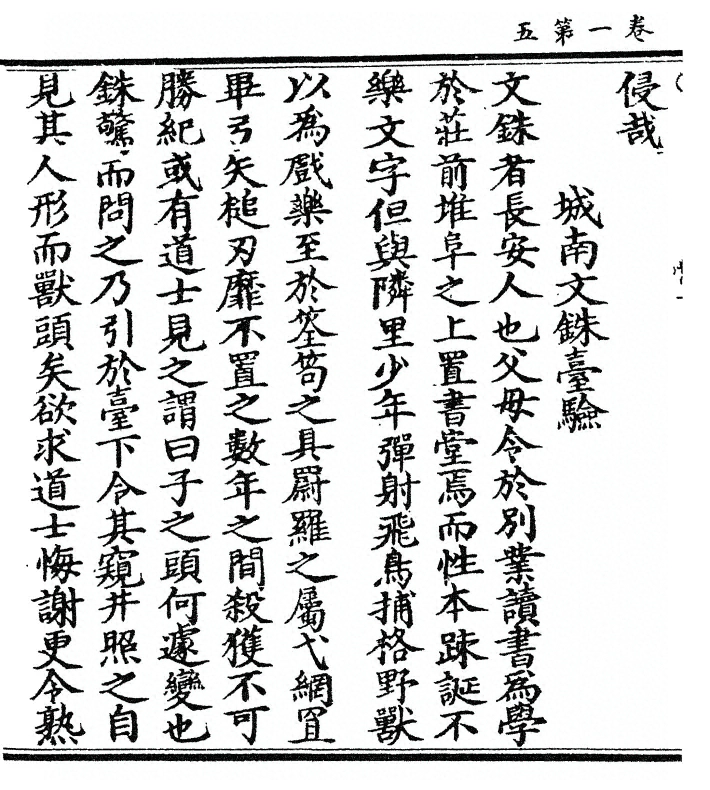 卷一第五
侵哉
城南文銖臺驗
文銖者長安人也父母令於別業讀書爲學
於莊前堆阜之上置書堂焉而性本踈誕不
樂文字但與隣里少年彈射飛鳥捕格野獸
以爲戲樂至於筌笱之具罻羅之屬弋網罝
畢弓矢槌刃靡不置之數年之間殺獲不可
勝紀或有道士見之謂曰子之頭何遽變也
銖驚而問之乃引於臺下令其窺井照之自
見其人形而獸頭矣欲求道士悔謝更令熟